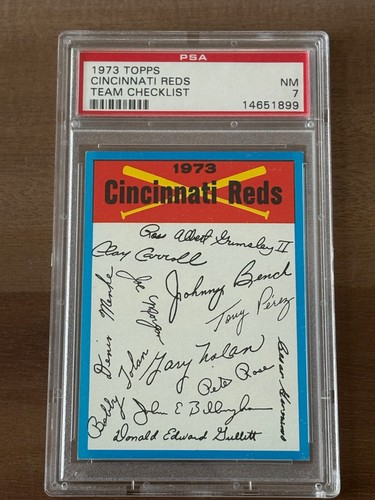 PSA
1973 TOPPS
CINCINNATI REDS NM
TEAM CHECKLIST 7
14651899
1973
Cincinnati Reds
Ross Albert Grimsley II
Clay Carroll
Johnny Bench
Joe Morgan
Denis Menke
Tony Pérez
Gary Nolan
Bobby Tolan
Pete Rose
John E Billingham
Donald Edward Gullett